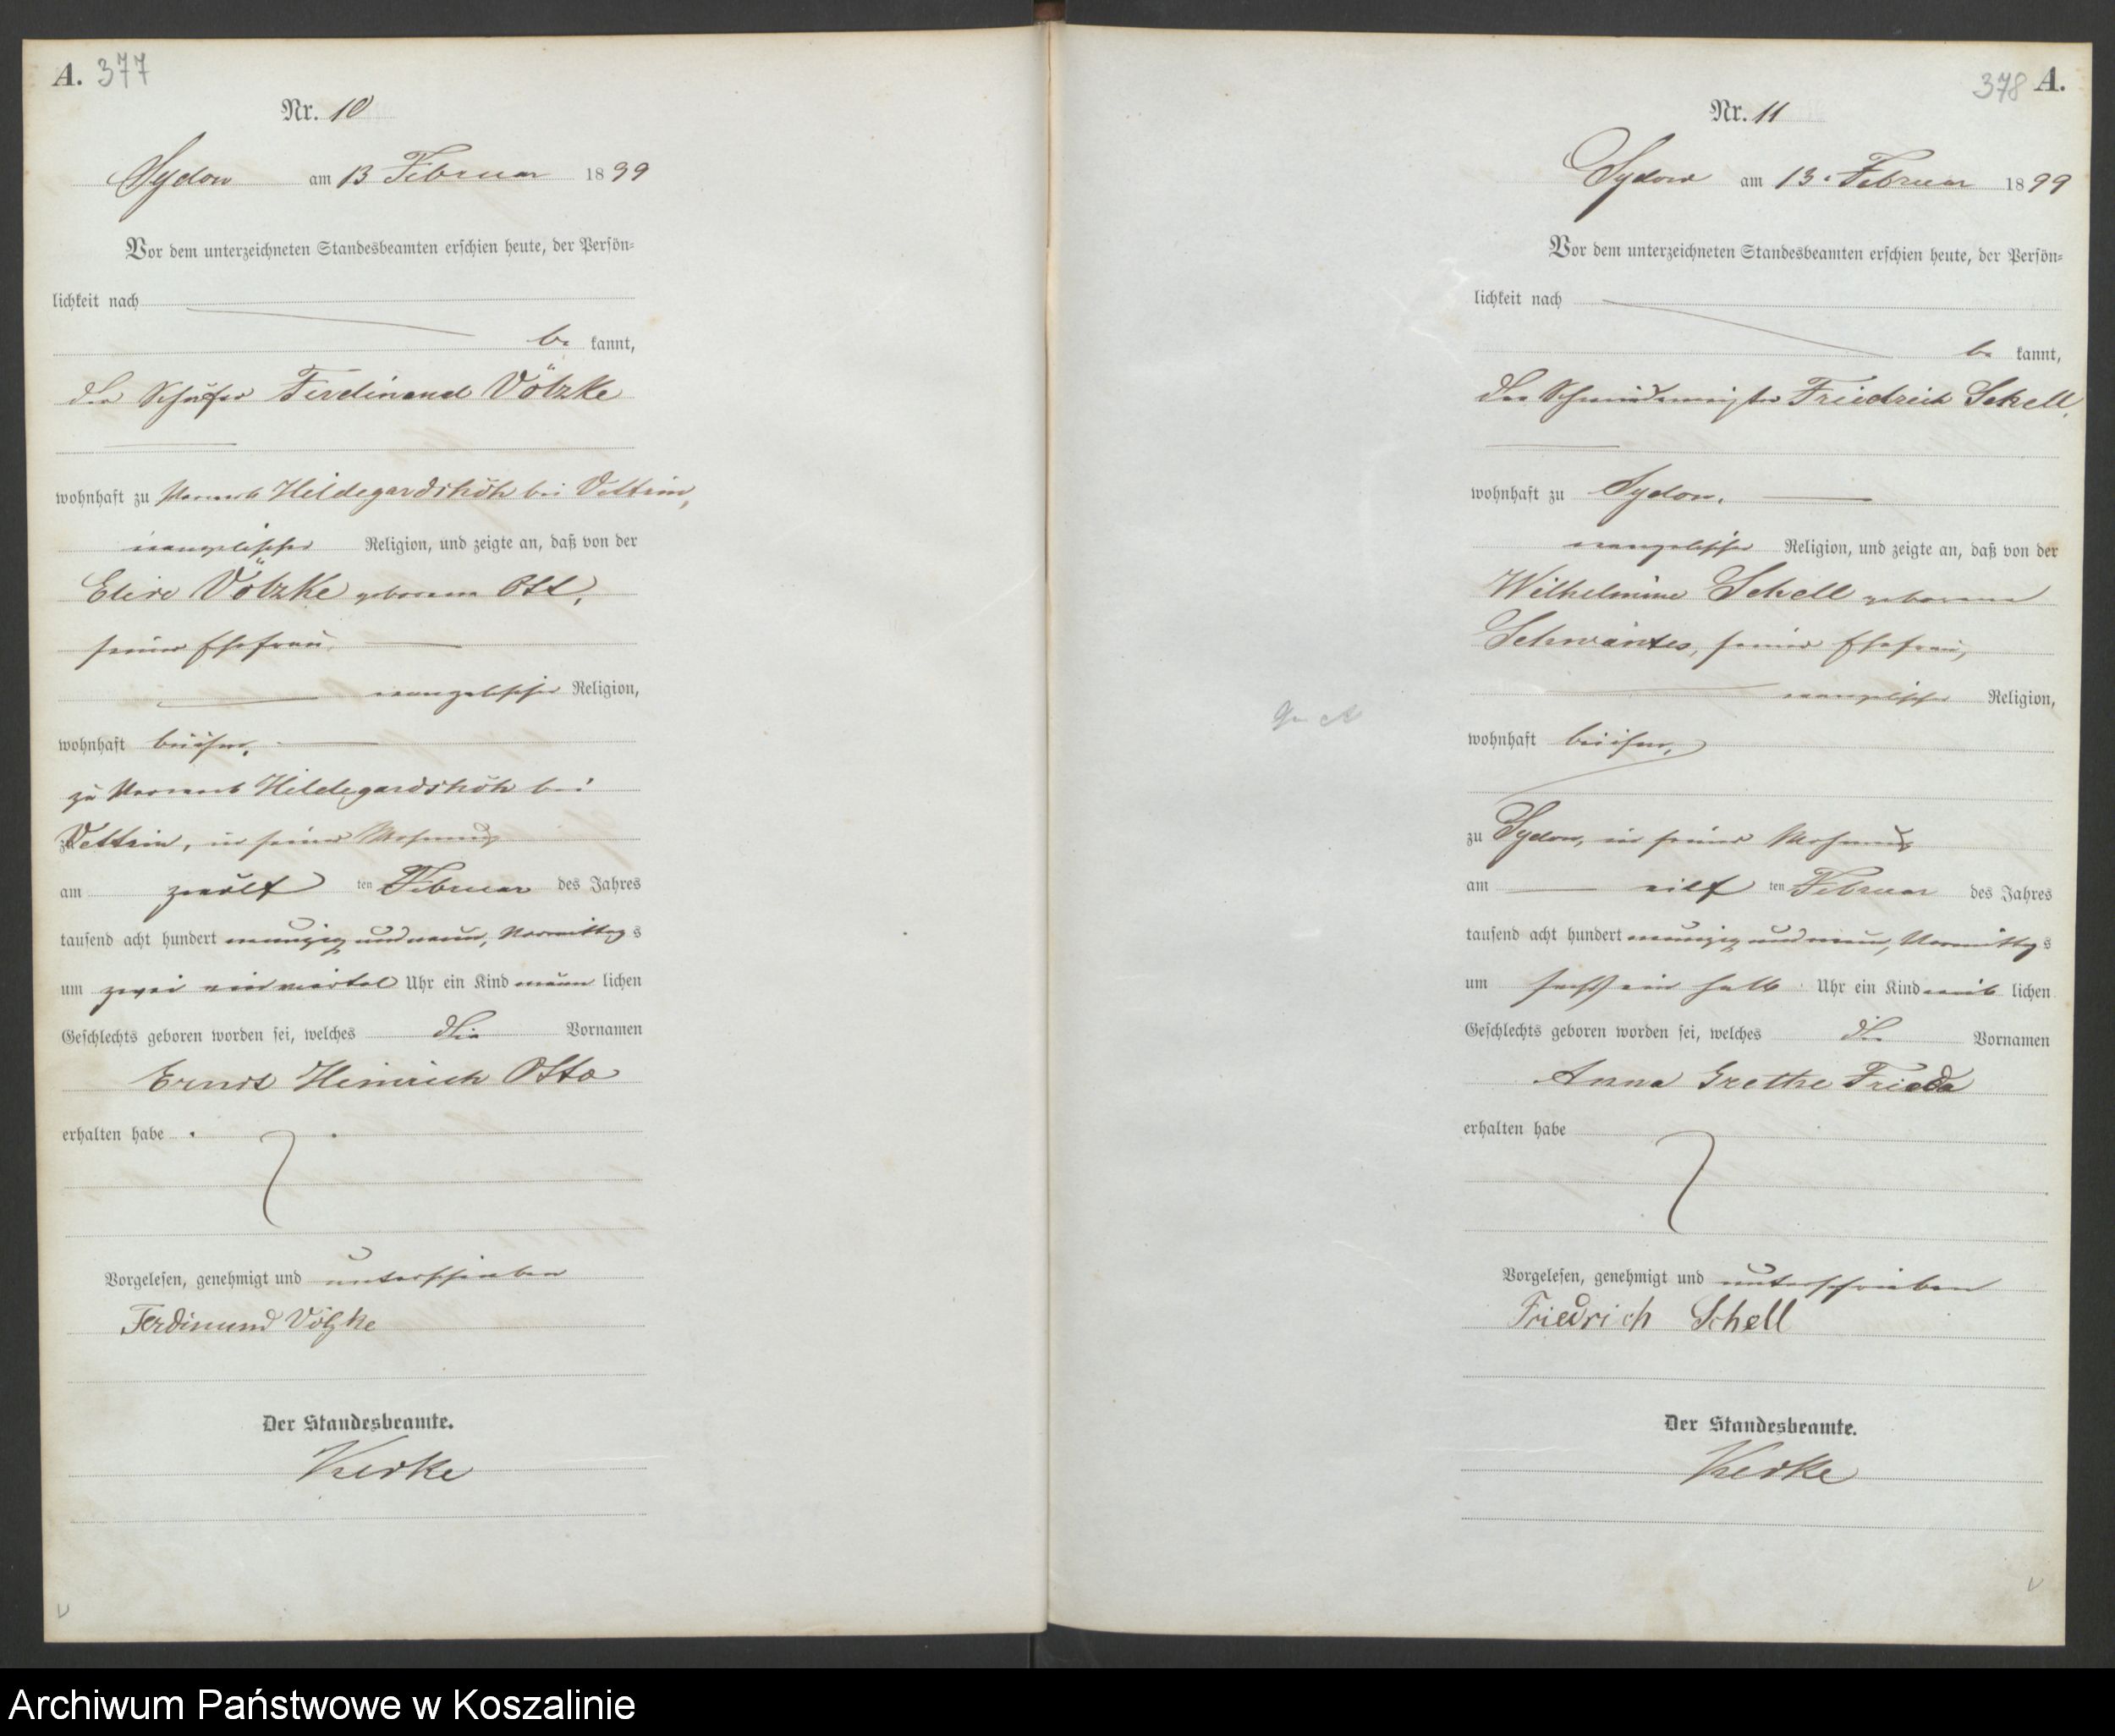 A. 377
Nr. 10
Sydow am 13 Februar 1899
Vor dem unterzeichneten Standesbeamten erschien heute, der Persön-
lichkeit nach
be kannt,
der Schäfer Ferdinand Völzke
wohnhaft zu Vorwerk Hildegardshöh bei Vettrin,
evangelischer Religion, und zeigte an, daß von der
Elise Völzke geborene Ott,
seiner Ehefrau,
evangelischer Religion,
wohnhaft bei ihm,
zu Vorwerk Hildegardshöh bei
zu Vettrin, in seiner Wohnung
am zwölf ten Februar des Jahres
tausend acht hundert neunzig und neun, Vormittags
um zwei ein viertel Uhr ein Kind männlichen
Geschlechts geboren worden sei, welches die Vornamen
Ernst Heinrich Otto
erhalten habe
Vorgelesen, genehmigt und unterschrieben
Ferdinand Völzke
Der Standesbeamte.
378 A.
Nr. 11
Sydow am 13. Februar 1899
Vor dem unterzeichneten Standesbeamten erschien heute, der Persön-
lichkeit nach
be kannt,
der Schmiedemeister Friedrich Schell,
wohnhaft zu Sydow,
evangelischer Religion, und zeigte an, daß von der
Wilhelmine Schell geborene
Schwantes, seiner Ehefrau,
evangelischer Religion,
wohnhaft bei ihm,
zu Sydow, in seiner Wohnung
am eilf ten Februar des Jahres
tausend acht hundert neunzig und neun, Vormittags
um sechs ein halb Uhr ein Kind weiblichen
Geschlechts geboren worden sei, welches die Vornamen
Anna Grethe Frieda
erhalten habe
Vorgelesen, genehmigt und unterschrieben
Friedrich Schell
Der Standesbeamte.
Archiwum Państwowe w Koszalinie